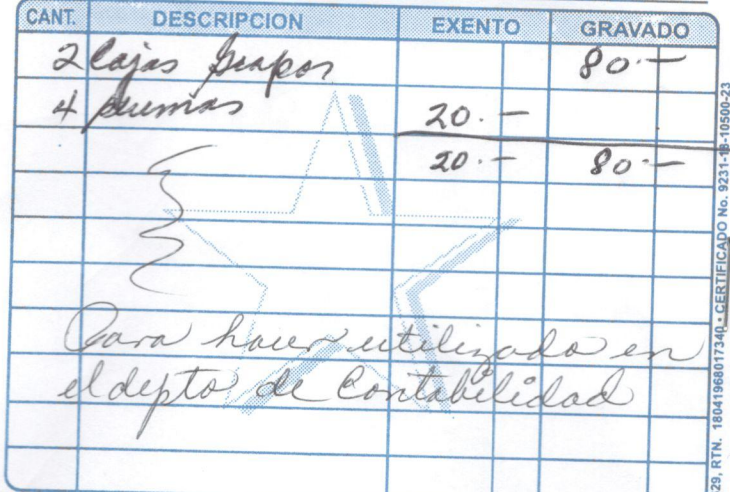 CANT. DESCRIPCION EXENTO GRAVADO
2 Cajas Grapas 80.-
4 plumas 20.-
20.- 80.-
Para hacer utilizado en
el depto de Contabilidad
29, RTN. 18041968017340 • CERTIFICADO No. 9231-18-10500-23